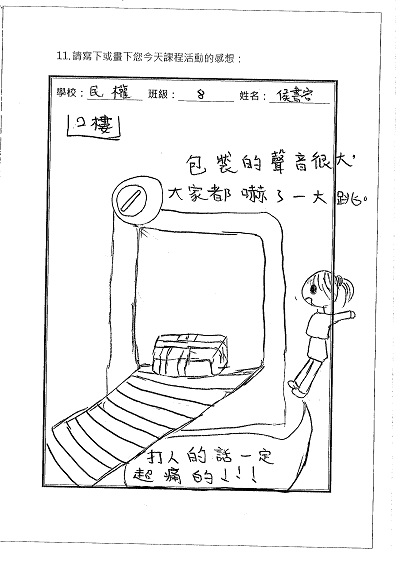 11.請寫下或畫下您今天課程活動的感想：
學校：民權 班級：8 姓名：侯書宇
2樓
包裝的聲音很大，
大家都嚇了一大跳。
打人的話一定
超痛的!!!